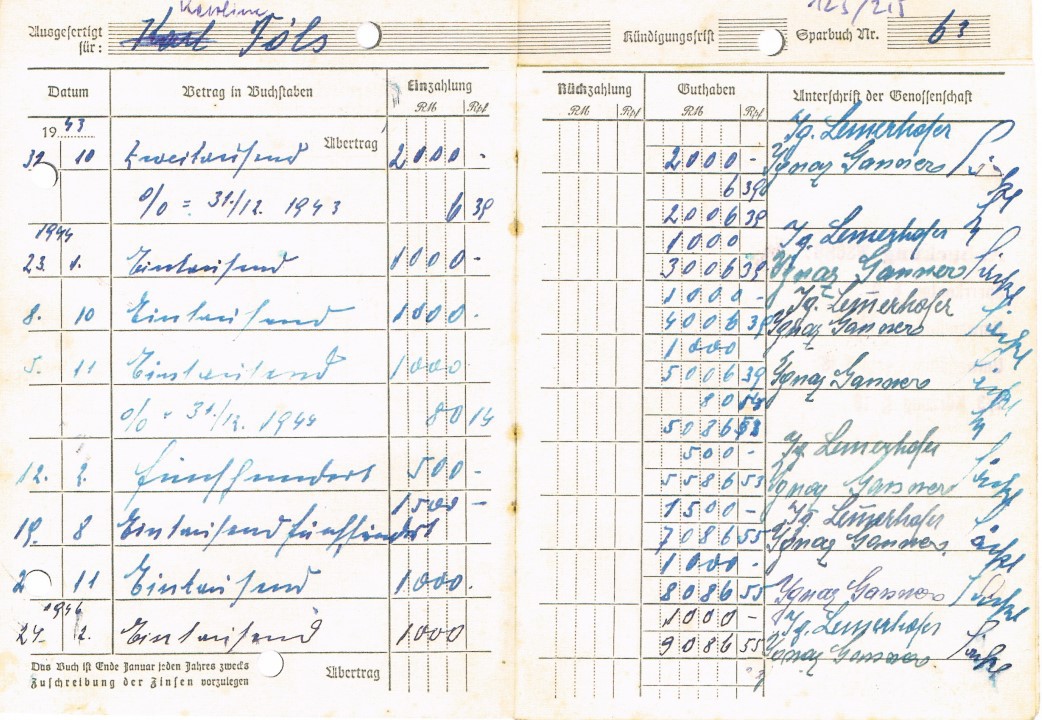 Karoline
123/215
Ausgefertigt für: Karl Föls
Kündigungsfrist
Sparbuch Nr. 63
Datum Betrag in Buchstaben Einzahlung Rückzahlung Guthaben Unterschrift der Genossenschaft
RM Rpf RM Rpf RM Rpf
1943 Übertrag Ig. Lemerhofer
31 10 Zweitausend 2000 - 2000 - Ignaz Gansners
6 39
% = 31./12. 1943 6 39 2006 39
1944 1000 Ig. Lemerhofer
23. 1. Eintausend 1000 - 3006 39 Ignaz Gansners
1000 - Ig. Lemerhofer
8. 10 Eintausend 1000 - 4006 39 Ignaz Gansners
1000
5. 11 Eintausend 1000 5006 39 Ignaz Gansners
80 14
% = 31./12. 1944 80 14 5086 53
500 - Ig. Lemerhofer
12. 2. fünfhundert 500 - 5586 53 Ignaz Gansners
1500 - 1500 - Ig. Lemerhofer
19. 8 Eintausendfünfhundert 7086 55 Ignaz Gansners
1000 -
2 11 Eintausend 1000. 8086 55 Ignaz Gansners
1946 1000 - Ig. Lemerhofer
24. 2. Eintausend 1000 9086 55 Ignaz Gansners
Das Buch ist Ende Januar jeden Jahres zwecks
Zuschreibung der Zinsen vorzulegen Übertrag